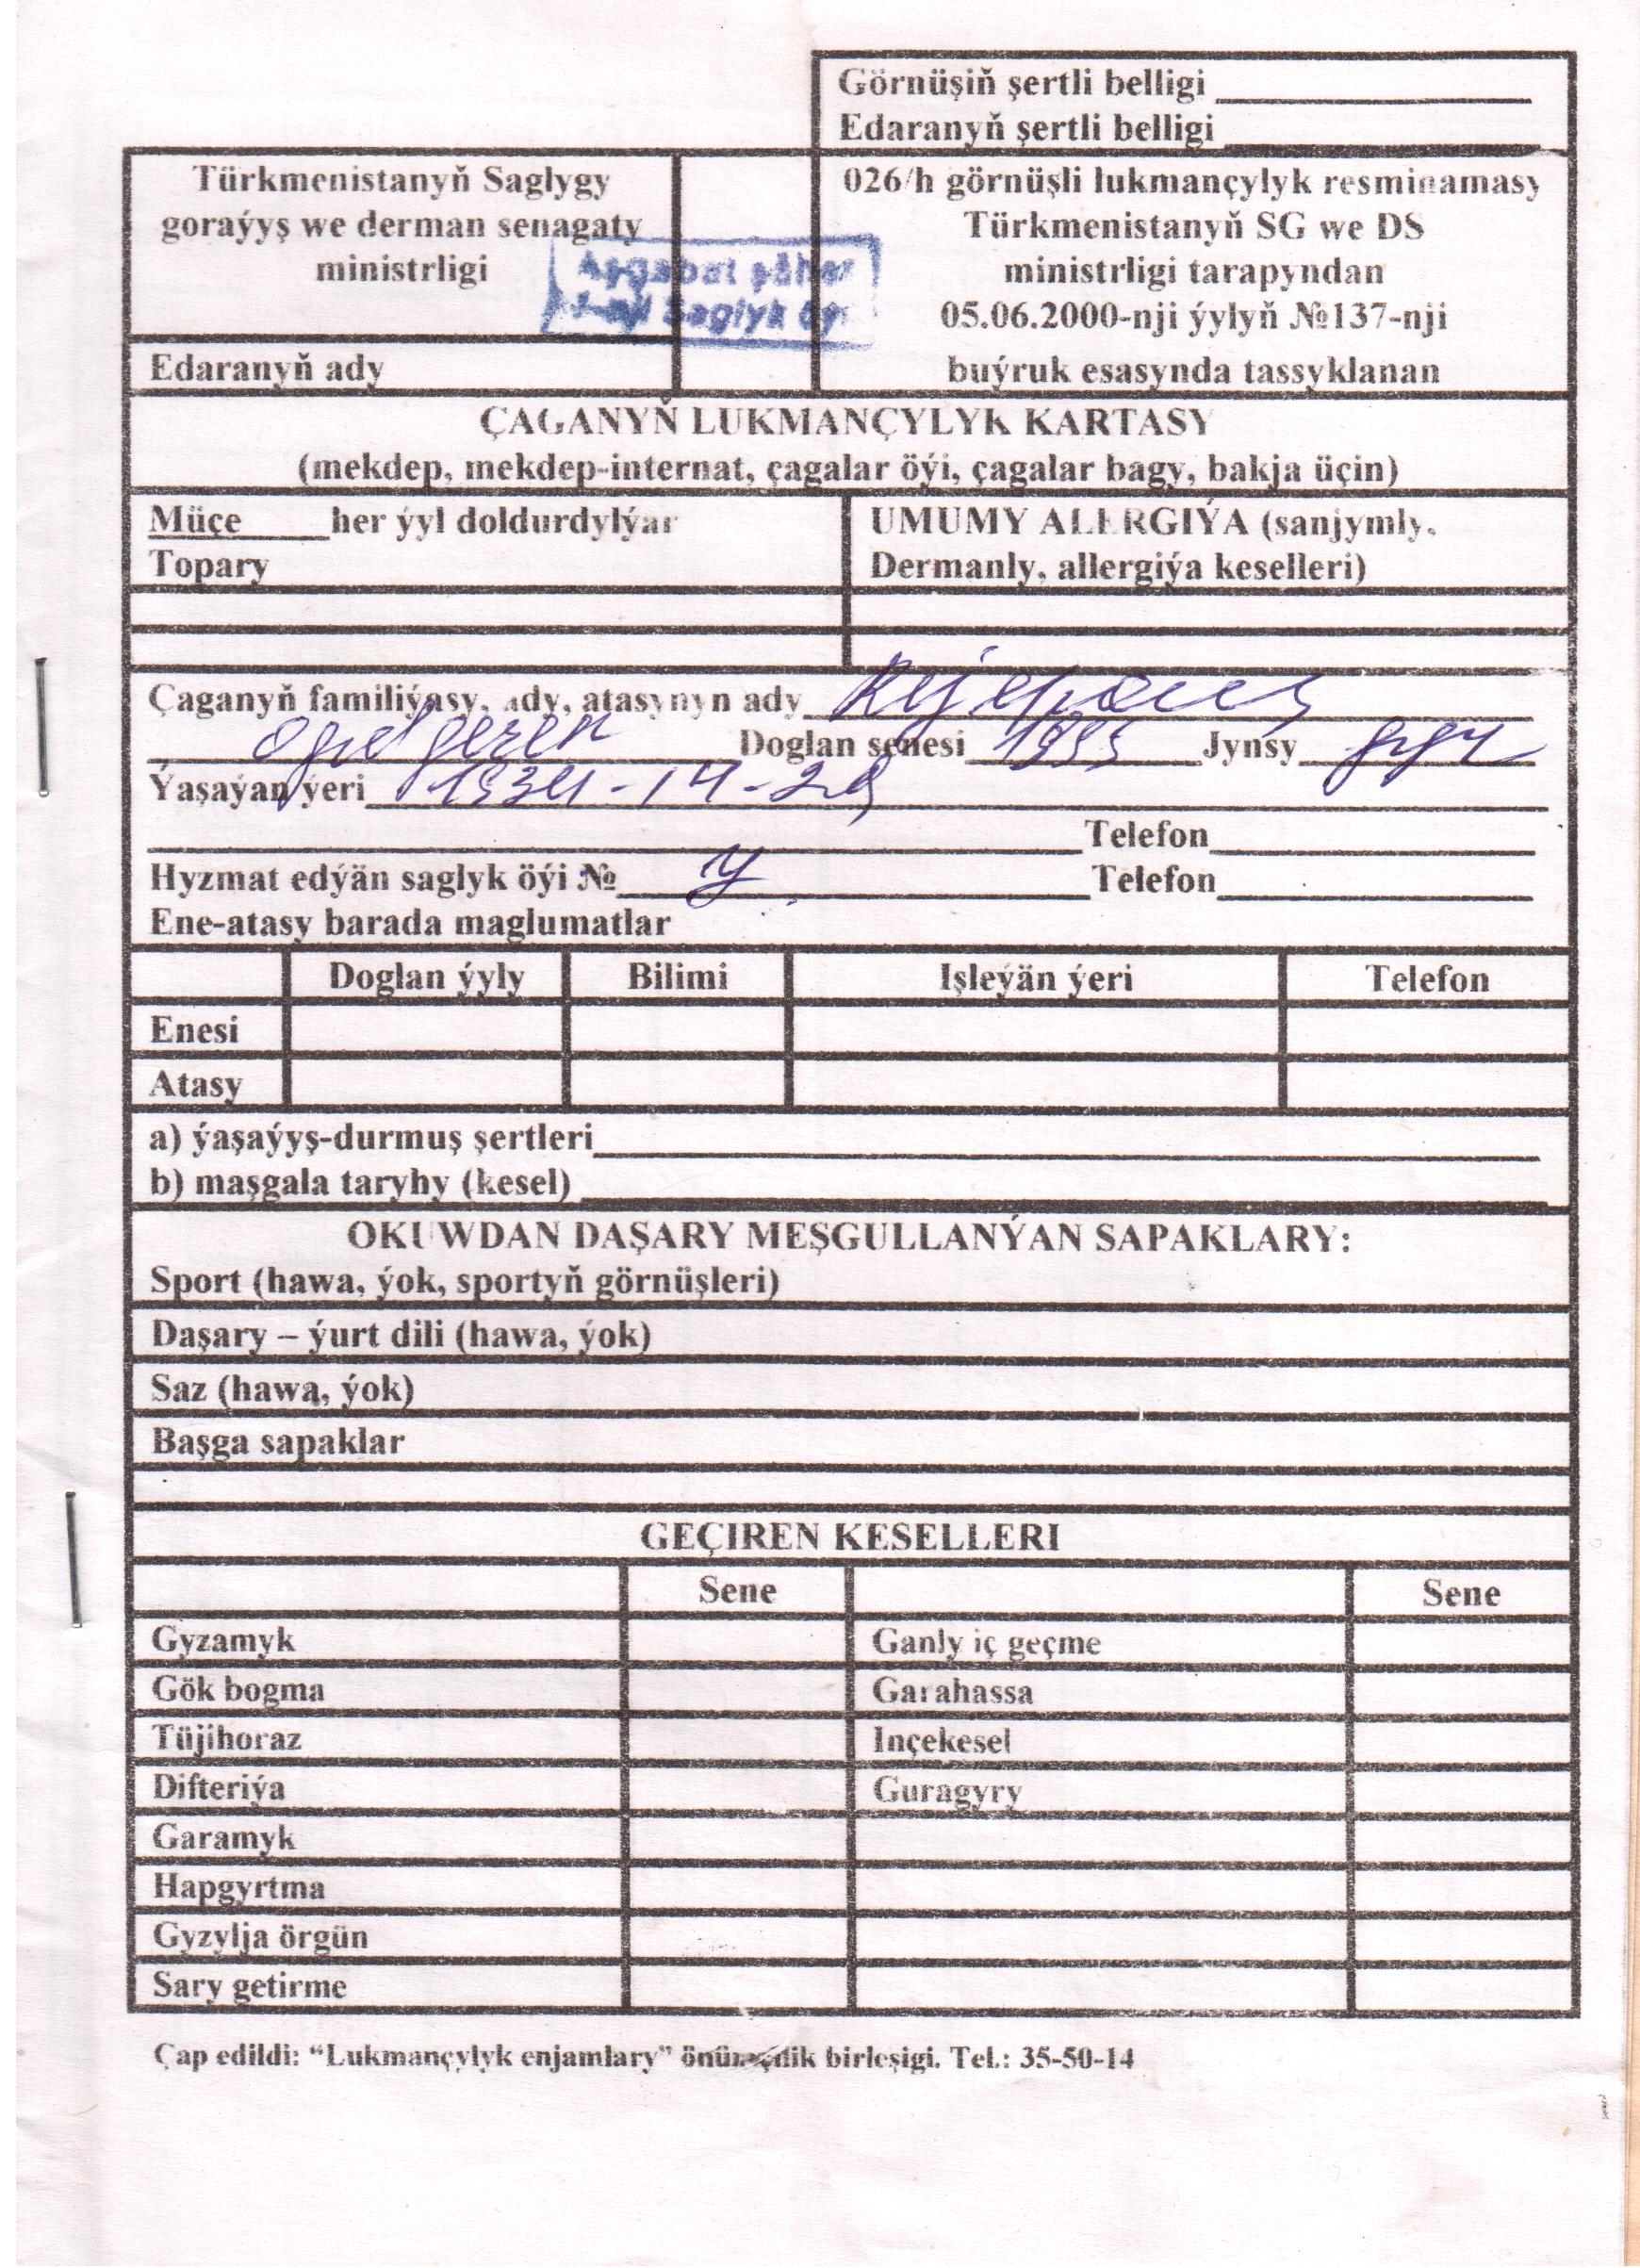 Görnüşiň şertli belligi
Edaranyň şertli belligi
Türkmenistanyň Saglygy
goraýyş we derman senagaty
ministrligi
Aşgabat şäher
Saglyk öýi
Edaranyň ady
026/h görnüşli lukmançylyk resminamasy
Türkmenistanyň SG we DS
ministrligi tarapyndan
05.06.2000-nji ýylyň №137-nji
buýruk esasynda tassyklanan
ÇAGANYŇ LUKMANÇYLYK KARTASY
(mekdep, mekdep-internat, çagalar öýi, çagalar bagy, bakja üçin)
Müçe her ýyl doldurdylýar
Topary
UMUMY ALERGIÝA (sanjymly,
Dermanly, allergiýa keselleri)
Çaganyň familiýasy, ady, atasynyn ady
Doglan senesi Jynsy gyz
Ýaşaýan ýeri
Telefon
Hyzmat edýän saglyk öýi № Telefon
Ene-atasy barada maglumatlar
Doglan ýyly Bilimi Işleýän ýeri Telefon
Enesi
Atasy
a) ýaşaýyş-durmuş şertleri
b) maşgala taryhy (kesel)
OKUWDAN DAŞARY MEŞGULLANÝAN SAPAKLARY:
Sport (hawa, ýok, sportyň görnüşleri)
Daşary – ýurt dili (hawa, ýok)
Saz (hawa, ýok)
Başga sapaklar
GEÇIREN KESELLERI
Sene Sene
Gyzamyk Ganly iç geçme
Gök bogma Garahassa
Tüjihoraz Inçekesel
Difteriýa Guragyry
Garamyk
Hapgyrtma
Gyzylja örgün
Sary getirme
Çap edildi: “Lukmançylyk enjamlary” önümçilik birleşigi. Tel.: 35-50-14
1